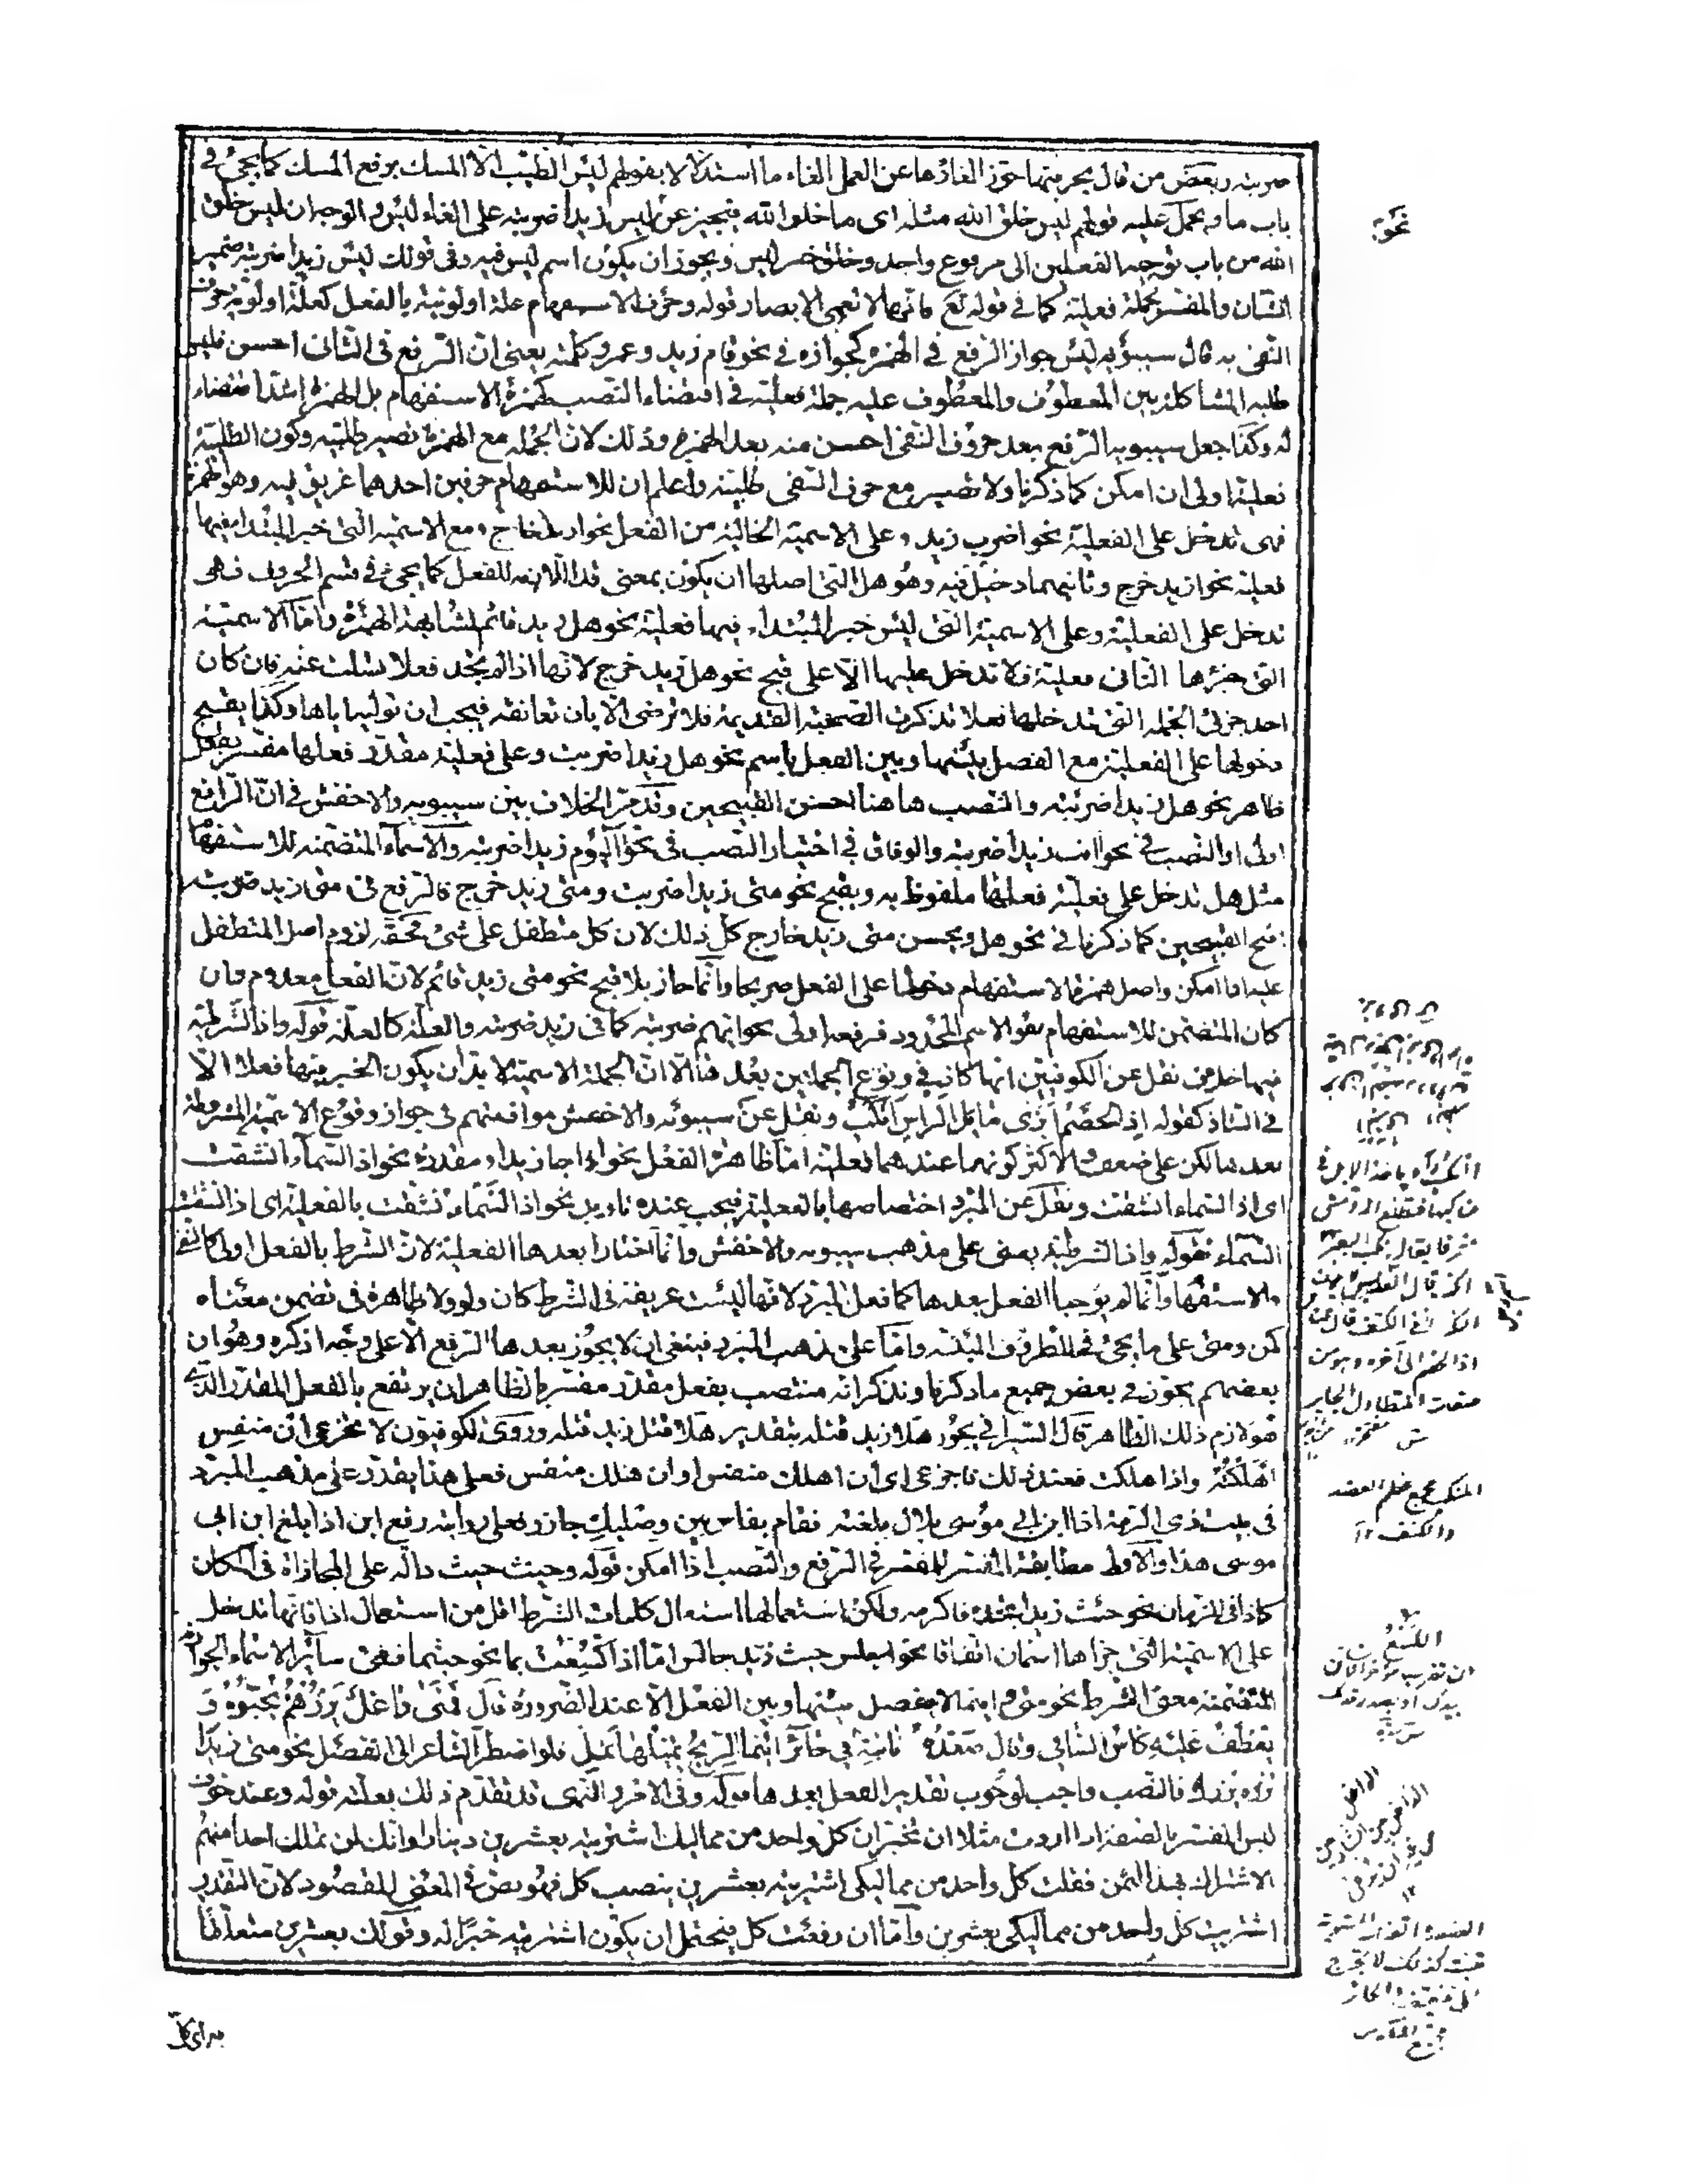 ضربته وبعض من قال بحرفيتها جوز الغاؤها عن العمل الغاء ما استدلالا بقولهم ليس الطيب الا المسك برفع المسك كما يجئ في
باب ما وحمل عليه قولهم ليس خلق الله مثله اى ما خلق الله فيجيز عن ليس زيدا ضربته على الغاء ليس والوجه ان ليس خلق
الله من باب توجيه الفعلين الى مرفوع واحد وخلق خبر ليس ويجوز ان يكون اسم ليس فيه وفى قولك ليس زيدا ضربته ضمير
الشان والمفسر بجملة فعلية كما في قوله تع فانها لا تعمى الابصار قوله وحرف الاستفهام علة اولويته بالفعل كعلة اولوية حرف
النفى به قال سيبويه ليس جواز الرفع في الهمزة كجوازه في نحو قام زيد وعمرو كلمته يعنى ان الرفع فى الثانى احسن فليس
طلب المشاكلة بين المعطوف والمعطوف عليه جملة فعلية في اقتضاء النصب كهمزة الاستفهام بل الهمزة اشد اقتضاء
له وكذا جعل سيبويه الرفع بعد حروف النفى احسن منه بعد الهمزة وذلك لان الجملة مع الهمزة تصير طلبية وكون الطلبية
فعلية اولى ان امكن كما ذكرنا ولا تصير مع حرف النفى طلبية واعلم ان للاستفهام حرفين احدهما عريق فيه وهو الهمزة
فهى تدخل على الفعلية نحو اضرب زيد وعلى الاسمية الخالية من الفعل نحو ازيد خارج ومع الاسمية التى خبر المبتدأ فيها
فعلية نحو ازيد خرج وثانيهما دخيل فيه وهو هل التى اصلها ان يكون بمعنى قد اللازمة للفعل كما يجئ في قسم الحروف فهى
تدخل على الفعلية وعلى الاسمية التى ليس خبر المبتداء فيها فعلية نحو هل زيد قائم لمشابهة الهمزة واما الاسمية
التى جزؤها الثانى فعلية فلا تدخل عليها الا على قبح نحو هل زيد خرج لانها اذا لم تجد فعلا تسلت عنه فان كان
احد جزئى الجملة التى تدخلها فعلا تذكرت الصحبة القديمة فلا ترضى الا بان تعانقه فيجب ان توليها اياها وكذا يقبح
دخولها على الفعلية مع الفصل بينها وبين الفعل باسم نحو هل زيدا ضربت وعلى فعلية مقدر فعلها مفسر بفعل
ظاهر نحو هل زيدا ضربته والنصب هاهنا احسن القبيحين وقد مر الخلاف بين سيبويه والاخفش في ان الرافع
اولى او النصب في نحو اانت زيدا ضربته والوفاق في اختيار النصب فى نحو اليوم زيدا ضربته والاسماء المتضمنة للاستفهام
مثل هل تدخل على فعلية فعلها ملفوظ به ويقبح نحو متى زيدا ضربت ومتى زيد خرج فالرفع فى متى زيد ضربته
اقبح القبيحين كما ذكرنا في نحو هل ويحسن متى زيد خارج كل ذلك لان كل متطفل على شئ فحقه لزوم اصل المتطفل
عليه اذا امكن واصل همزة الاستفهام دخولها على الفعل صريحا وانما جاز بلا قبح نحو متى زيد قائم لان الفعل معدوم فان
كان المتضمن للاستفهام هو الاسم المحدود فرفعه اولى نحو ايهم ضربته كما فى زيد ضربته والعلة كالعلة قوله واذا الشرطية
فيها خلاف نقل عن الكوفيين انها كاذ في وقوع الجملتين بعدها الا ان الجملة الاسمية لا بد ان يكون الخبر فيها فعلا الا
في الشاذ كقوله اذ الخصم ابزى مائل الراس انكب ونقل عن سيبويه والاخفش موافقتهم فى جواز وقوع الاسمية المشروطة
بعدها لكن على ضعف والاكثر كونها عندهما فعلية اما ظاهرة الفعل نحو اذا جاء زيد او مقدرة نحو اذا السماء انشقت
اى اذا السماء انشقت ونقل عن المبرد اختصاصها بالفعلية فيجب عنده تاويل نحو اذا السماء انشقت بالفعلية اى اذا انشقت
السماء فقوله واذا الشرطية يعنى على مذهب سيبويه والاخفش وانما اختارا بعدها الفعلية لان الشرط بالفعل اولى كالنفى
والاستفهام وانما لم يوجبا الفعل بعدها كما فعل المبرد لانها ليست عريقة فى الشرط كان ولو ولا ظاهرة فى تضمن معناه
كمن ومتى على ما يجئ فى الظروف المبنية واما على مذهب المبرد فينبغى ان لا يجوز بعدها الرفع الا على وجه اذكره وهو ان
بعضهم يجوز في بعض جميع ما ذكرنا ونذكر انه منتصب بفعل مقدر مفسر بالظاهر ان يرتفع بالفعل المقدر الذى
هو لازم ذلك الظاهر قال السيرافي يجوز هلا زيد قتله بتقدير هلا قتل زيد قتله وروى الكوفيون لا تجزعى ان منفس
اهلكته واذا هلكت فعند ذلك فاجزعى اى ان اهلك منفس او ان هلك منفس فعلى هذا يقدر على مذهب المبرد
فى بيت ذى الرمة اذا ابن ابى موسى بلال بلغته فقام بفاس بين وصليك جازر وعلى رواية رفع ابن اذا بلغ ابن ابى
موسى هذا والاولى مطابقة المفسر للمفسر في الرفع والنصب اذا امكن قوله وحيث حيث دالة على المجازاة فى المكان
كاذا فى الزمان نحو حيث زيدا تجده فاكرمه ولكن استعمالها استعمال كلمات الشرط اقل من استعمال اذا فانها تدخل
على الاسمية التى جزاها اسمان اتفاقا نحو اجلس حيث زيد جالس اما اذا كسعت بما نحو حيثما ففى سائر الاسماء الجوازم
المتضمنة معنى الشرط نحو متى واينما لا يفصل بينها وبين الفعل الا عند الضرورة قال فمتى واغل يزرهم يحيوه و
يعطف عليه كاس الساقى وقال صعدة نابتة في حائر اينما الريح تميلها تمل فلو اضطر الشاعر الى الفصل نحو متى زيدا
تزره يزرك فالنصب واجب لوجوب تقدير الفعل بعدها قوله وفى الامر والنهى قد تقدم ذلك بعلته قوله وعند خوف
لبس المفسر بالصفة اذا اردت مثلا ان تخبر ان كل واحد من مماليك اشتريته بعشرين دينارا وانك لن تملك احدا منهم
الا شراك بهذا الثمن فقلت كل واحد من مماليكى اشتريته بعشرين بنصب كل فهو نص في المعنى المقصود لان التقدير
اشتريت كل واحد من مماليكى بعشرين واما ان رفعت كل فيحتمل ان يكون اشتريته خبرا له وقولك بعشرين متعلقا
نحو
المنكب مجمع عظم العضد
والكتف ١٢